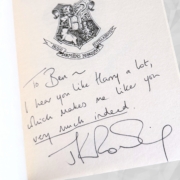 To Ben ~
I hear you like Harry a lot,
which makes me like you
very much indeed.
JK Rowling